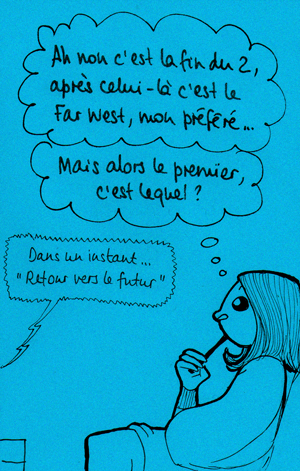 Ah non c'est la fin du 2,
après celui-là c'est le
Far West, mon préféré...
Mais alors le premier,
c'est lequel ?
Dans un instant...
"Retour vers le futur"